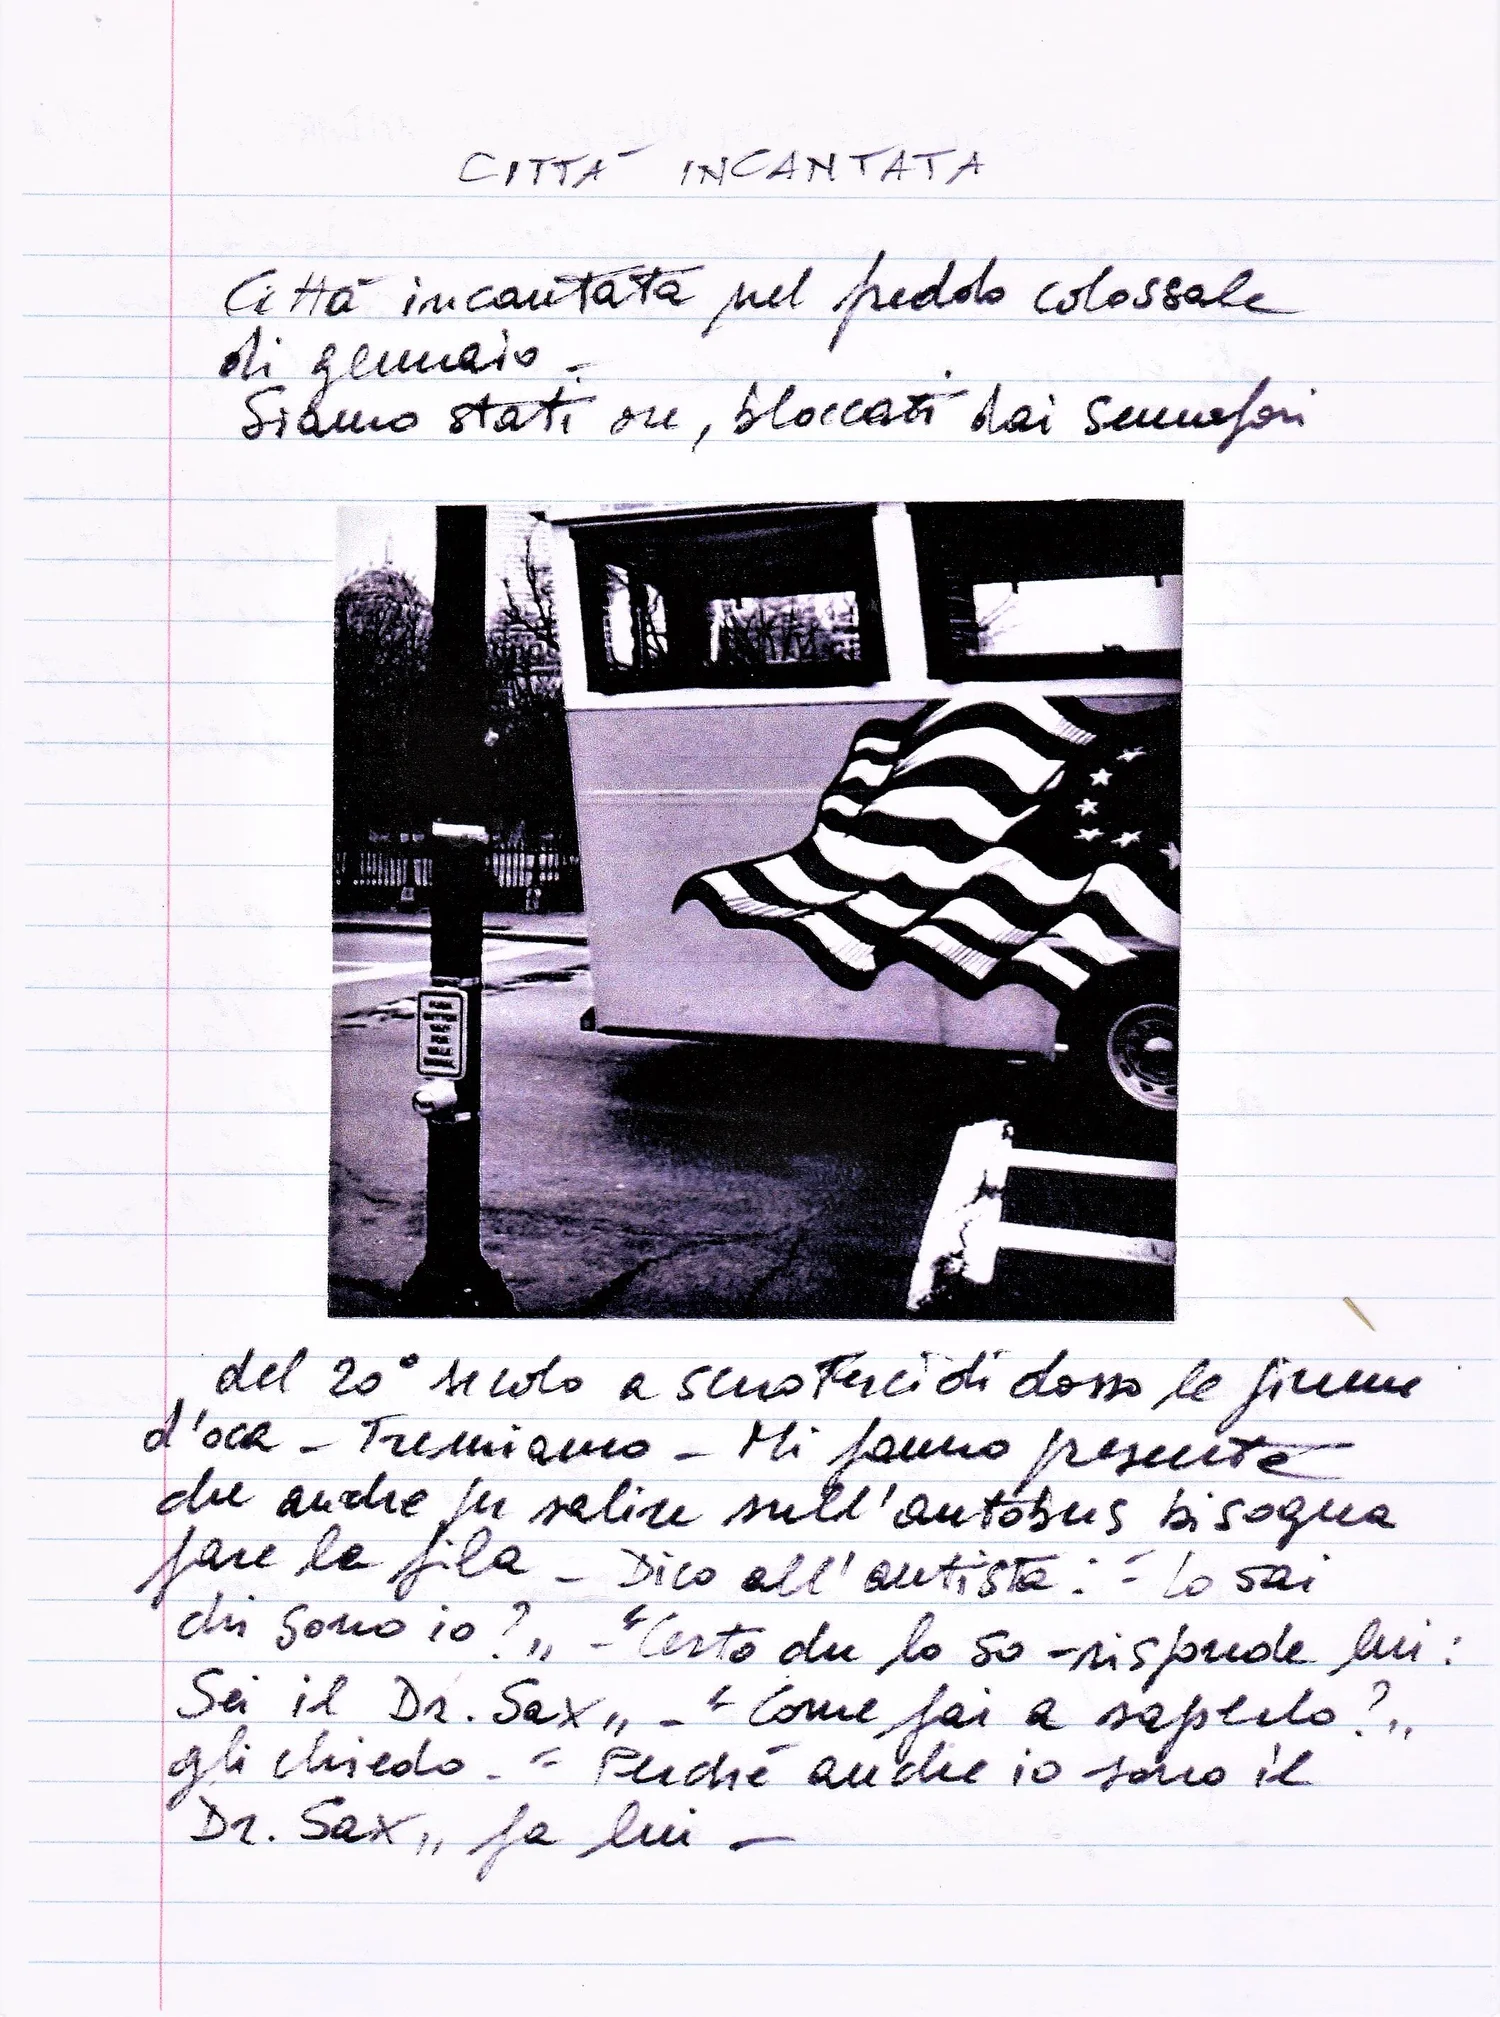 CITTÀ INCANTATA
Città incantata nel freddo colossale
di gennaio –
Siamo stati ore, bloccati dai semafori
del 20° secolo a scuoterci di dosso le piume
d'oca – Tremiamo – Mi fanno presente
che anche per salire sull'autobus bisogna
fare la fila – Dico all'autista: "Lo sai
chi sono io?„ – "Certo che lo so – risponde lui:
Sei il Dr. Sax„ – "Come fai a saperlo?„
gli chiedo – "Perché anche io sono il
Dr. Sax„ fa lui –